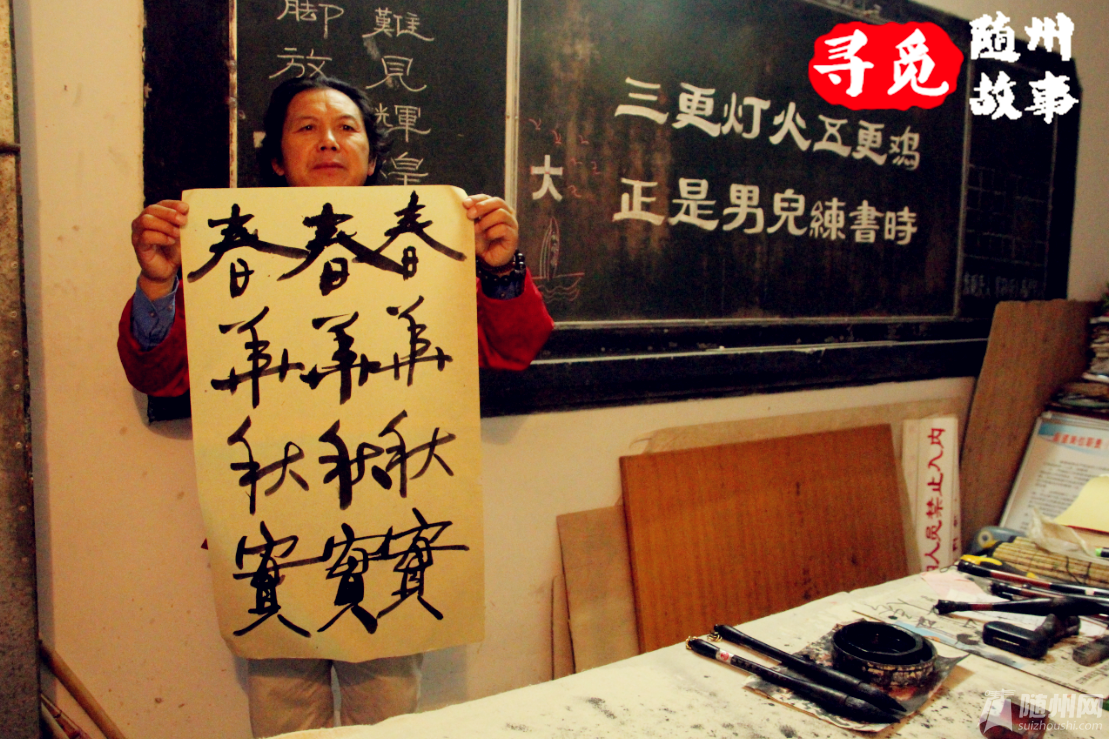 寻觅
随州
故事
脚放
難見輝皇
三更灯火五更鸡
正是男兒練書時
大
春春春
華華華
秋秋秋
實實實
人员禁止入内
随州网
suizhoushi.com